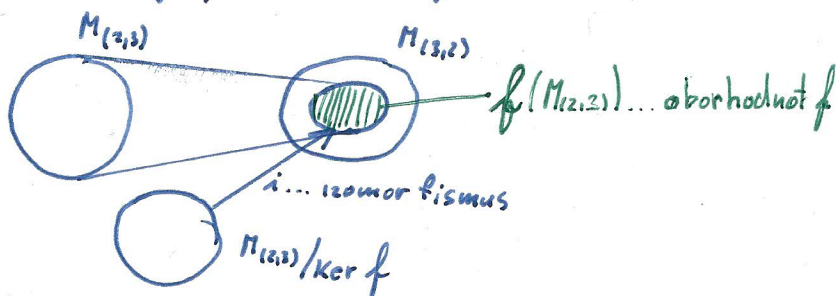 M(2,3)
M(3,2)
f(M(2,3)) ... oborhodnot f
i ... izomorfismus
M(2,3)/Ker f